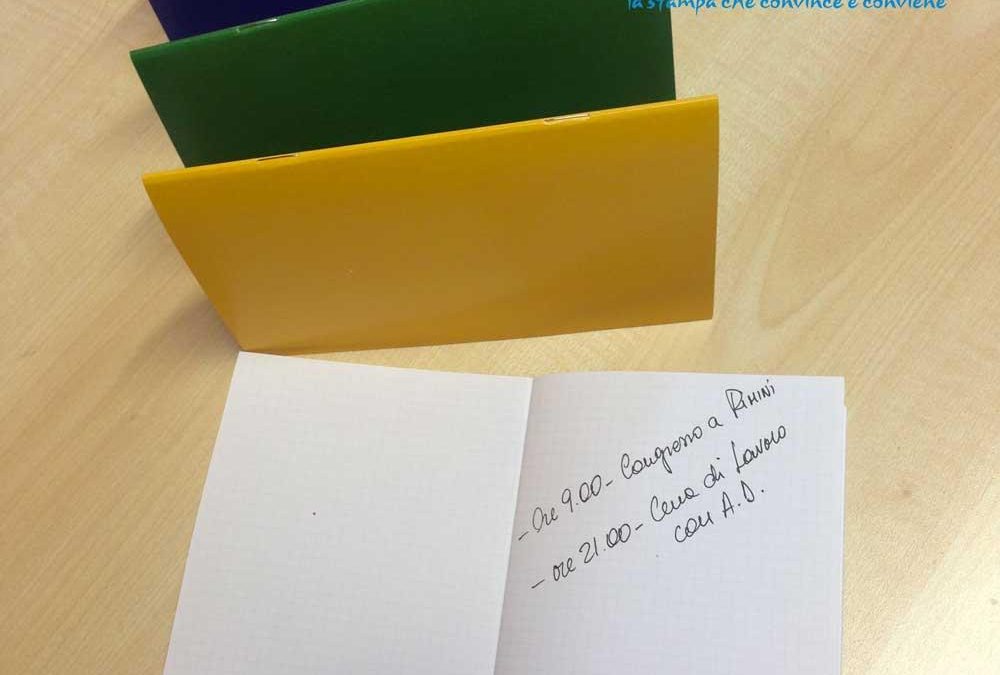 la stampa che convince e conviene
- Ore 9.00 - Congresso a Rimini
- ore 21.00 - Cena di Lavoro
con A.D.